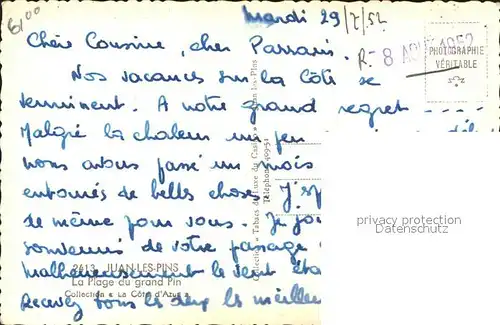 Mardi 29/7/52
Chère Cousine, cher Parrain.
R- 8 AOU 1952
PHOTOGRAPHIE
VÉRITABLE
Nos vacances sur la Côte se
terminent. A notre grand regret
Malgré la chaleur un peu
nous avons passé un mois
entourés de belles choses. J'esp
de même pour vous. Je joi
souvenirs de votre passage
malheureusement le vent éta
Recevez tous les deux les meilleu
privacy protection
Datenschutz
2613 JUAN-LES-PINS
La Plage du grand Pin
Collection « La Côte d'Azur »
Collection « Tabacs de Luxe du Casino » Juan-les-Pins
Téléphone